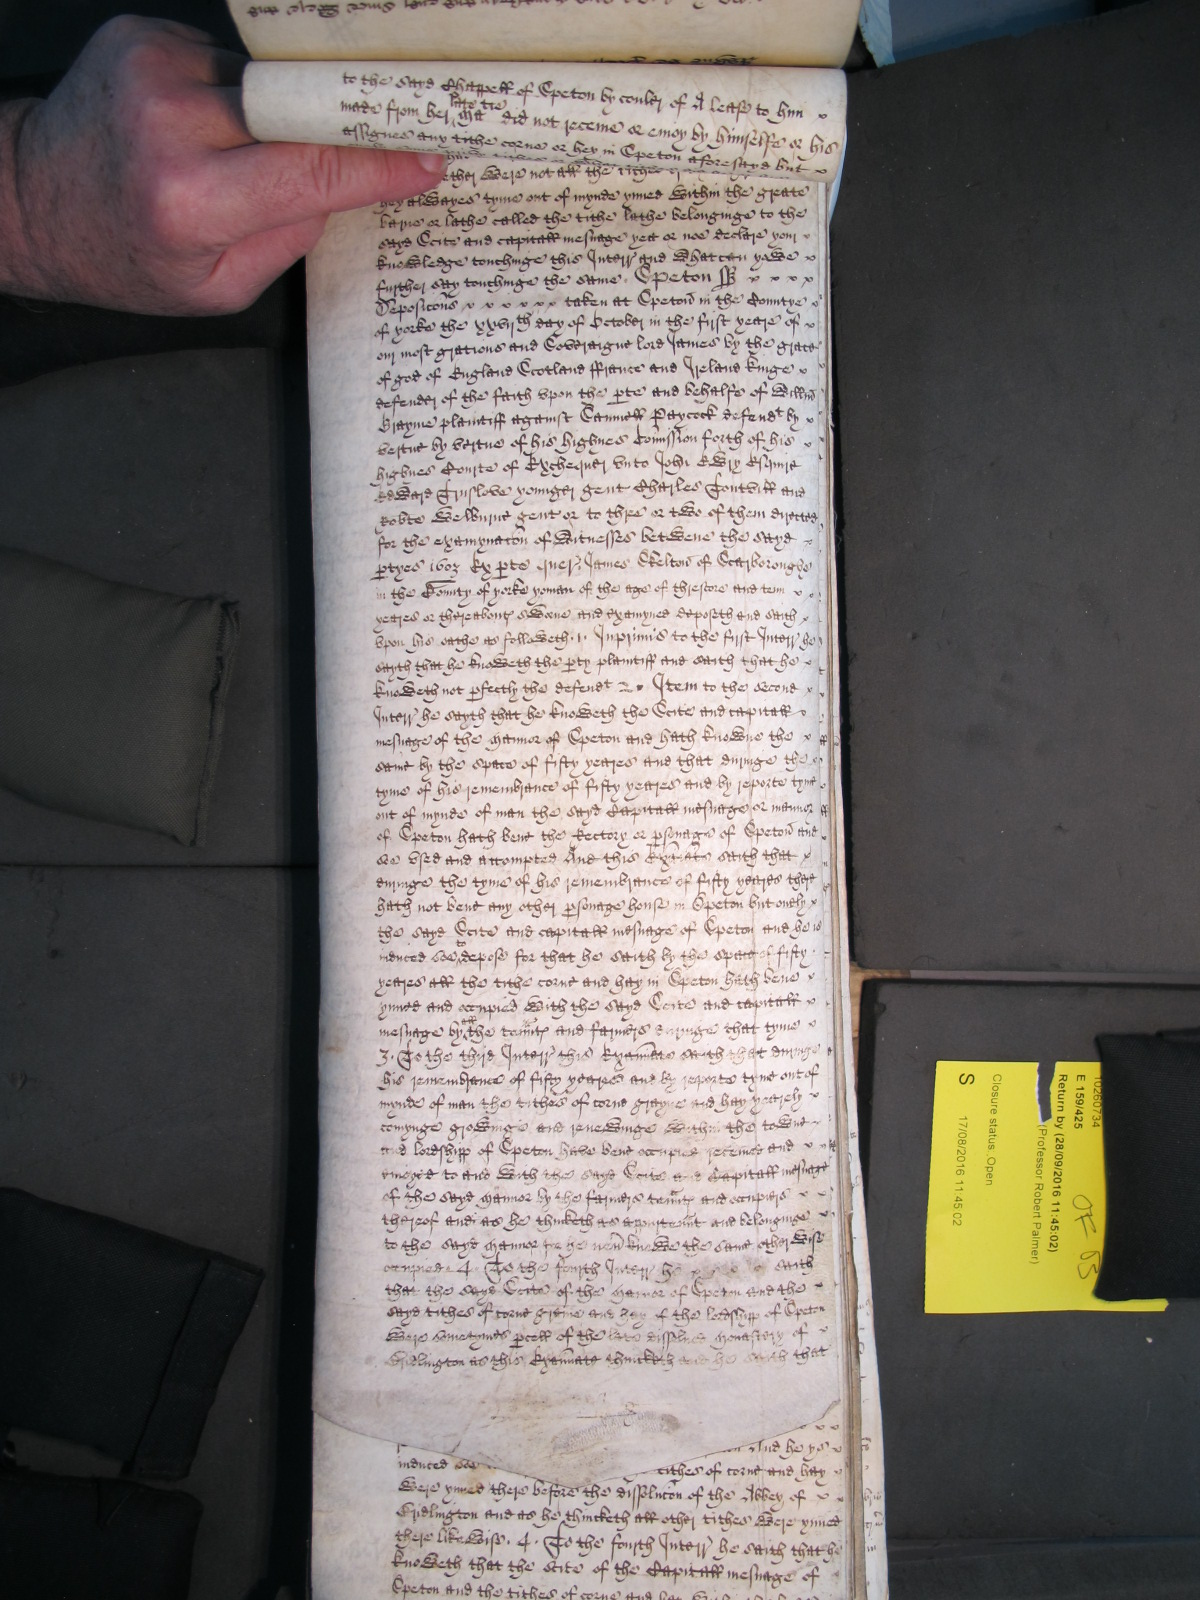 to the sayd Chappell of Speton by coulor of A lease to him
made from her late ma^tie did not receive or enioy by himselfe or his
assignes any tithe corne or hey in Speton aforesayd but
whether were not all the tithes
hey alwayes tyme out of mynde ynned within the greate
barne or lathe called the tithe lathe belonginge to the
sayd Scite and capitall mesuage yea or noe declare your
knowledge touchinge this Interr and what can yowe
further say touchinge the same. Speton ss
Deposicons taken at Speton in the Countye
of yorke the xxvith day of October in the first yeare of
our most gratious and Soveraigne lord James by the grace
of god of England Scotland ffrance and Ireland kinge
defender of the faith vpon the pte and behalfe of Willm
Grayme plaintiff against Sammell Paycock defendt by
vertue by vertue of his highnes Comission forth of his
highnes Courte of Exchequer vnto John Esquire
Edward Truslove younger gent Charles and
Robte Welburne gent or to three or two of them directed
for the examynacon of witnesses betwene the sayd
ptyes 1603 Ex pte Quer. James Skelton of Scarboroughe
in the County of yorke yoman of the age of threscore and tenn
yeares or thereabout sworne and examyned deposeth and saith
vpon his oathe as followeth. 1. Inprimis to the first Interr he
sayth that he knoweth the pty plaintiff and saith that he
knoweth not pfectly the defendt 2. Item to the second
Interr he sayth that he knoweth the Scite and capitall
mesuage of the mannor of Speton and hath knowne the
same by the space of fifty yeares and that duringe the
tyme of his remembrance of fifty yeares and by reporte tyme
out of mynde of man the sayd Capitall mesuage or mannor
of Speton hath bene the Rectory or psonage of Speton and
so vsed and accompted And this Examinate saith that
duringe the tyme of his remembrance of fifty yeares there
hath not bene any other psonage house in Speton but onely
the sayd Scite and capitall mesuage of Speton and he is
induced soe to depose for that he saith by the space of fifty
yeares all the tithe corne and hay in Speton hath bene
ynned and occupied with the sayd Scite and capitall
mesuage by all the tennts and farmers duringe that tyme
3. To the third Interr this Examinate saith that duringe
his remembrance of fifty yeares and by reporte tyme out of
mynde of man the tithes of corne grayne and hay yearely
comynge growinge and renewinge within the towne
and lordshipp of Speton have bene occupied receaved and
enioy'd to and with the sayd Scite and Capitall mesuage
of the sayd mannor by the farmers tennts and occupiers
thereof and as he thinketh as apurtennt and belonginge
to the sayd mannor for he nevr knewe the same otherwise
occupied. 4. To the fourth Interr he saith
that the sayd Scite of the mannor of Speton and the
sayd tithes of corne graine and hay of the lordshipp of Speton
were sometymes pcell of the late dissolved monastery of
Bridlington as this Examinate thinketh and he saith that
And he ys
induced soe tithes of corne and hay
were ynned there before the dissolucon of the Abbey of
Bridlington and as he thincketh all other tithes were ynned
there likewise. 4. To the fourth Interr he saith that he
knoweth that the scite of the Capitall mesuage of
Speton and the tithes of corne and hay
10260734
E 159/425
Return by (28/09/2016 11:45:02)
(Professor Robert Palmer)
Closure status: Open
S 17/08/2016 11:45:02